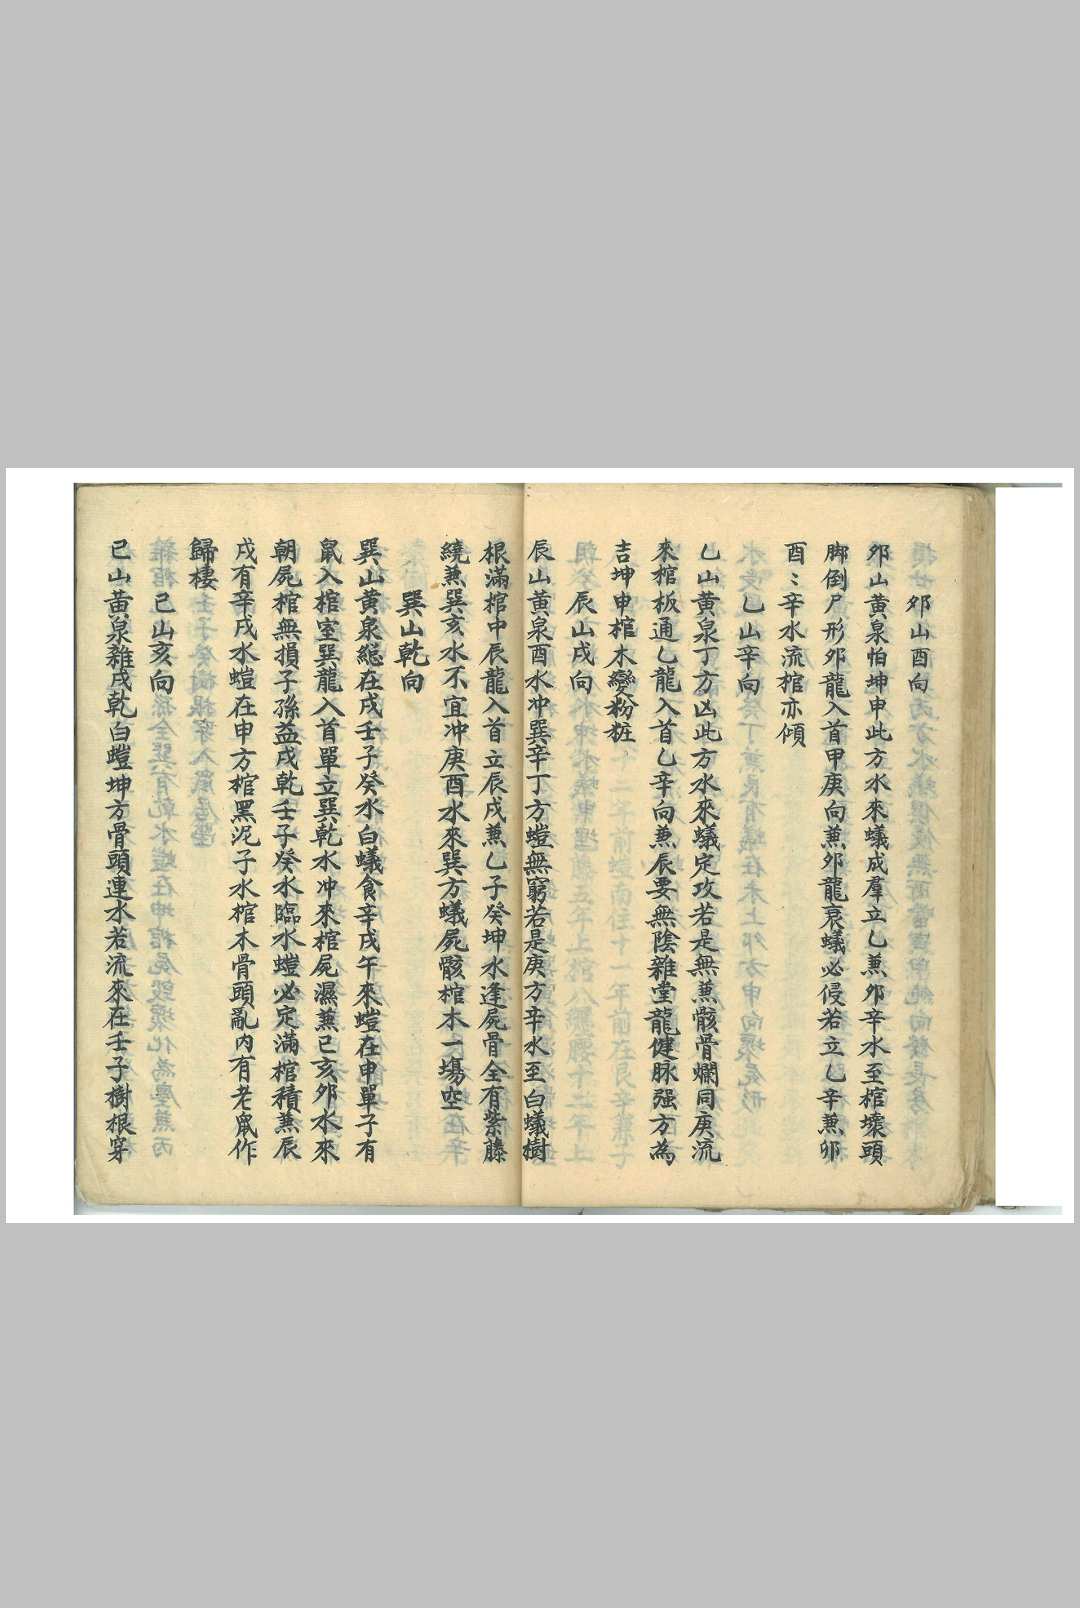 夘山酉向
夘山黃泉怕坤申此方水來蟻成羣立乙兼夘辛水至棺壞頭
脚倒尸形夘龍入首甲庚向兼夘龍衰蟻必侵若立乙辛兼卯
酉〻辛水流棺亦傾
乙山辛向
乙山黃泉丁方凶此方水來蟻定攻若是無兼骸骨爛同庚流
來棺板通乙龍入首乙辛向兼辰要無陰雜堂龍健脉强方為
吉坤申棺木變粉粧
辰山戌向
辰山黃泉酉水冲巽辛丁方螘無窮若是庚方辛水至白蟻樹
根滿棺中辰龍入首立辰戌兼乙子癸坤水逢屍骨全有紫藤
繞兼巽亥水不宜冲庚酉水來巽方蟻屍骸棺木一塲空
巽山乾向
巽山黃泉総在戌壬子癸水白蟻食辛戌午來螘在申單子有
鼠入棺室巽龍入首單立巽乾水冲來棺屍濕兼已亥夘水來
朝屍棺無損子孫益戌乾壬子癸水臨水螘必定滿棺積兼辰
戌有辛戌水螘在申方棺黑泥子水棺木骨頭亂内有老鼠作
歸樓
已山亥向
已山黃泉雜戌乾白螘坤方骨頭連水若流來在壬子樹根穿